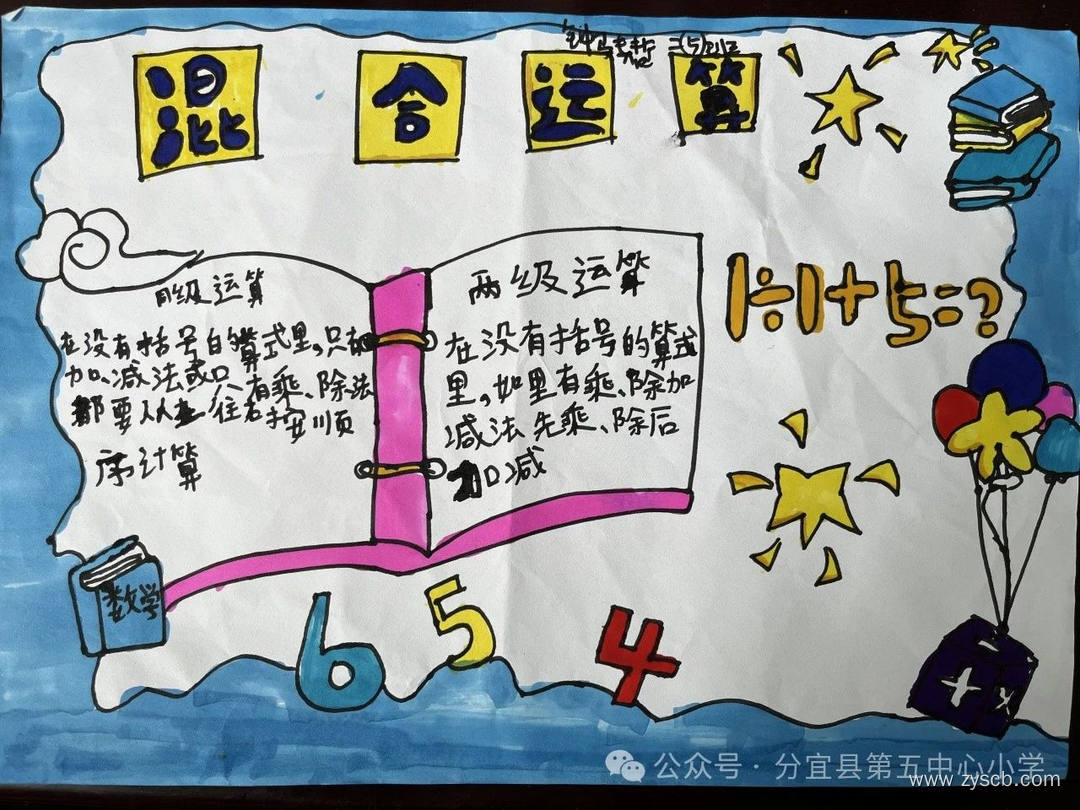 混合运算
二(5)班
同级运算
在没有括号的算式里,只有
加、减法或只有乘、除法
都要从左往右按顺
序计算
两级运算
在没有括号的算式
里,如里有乘、除加
减法先乘、除后
加减
1÷1+5=?
数学
6 5 4
+ ×
公众号·分宜县第五中心小学
www.zyscb.com